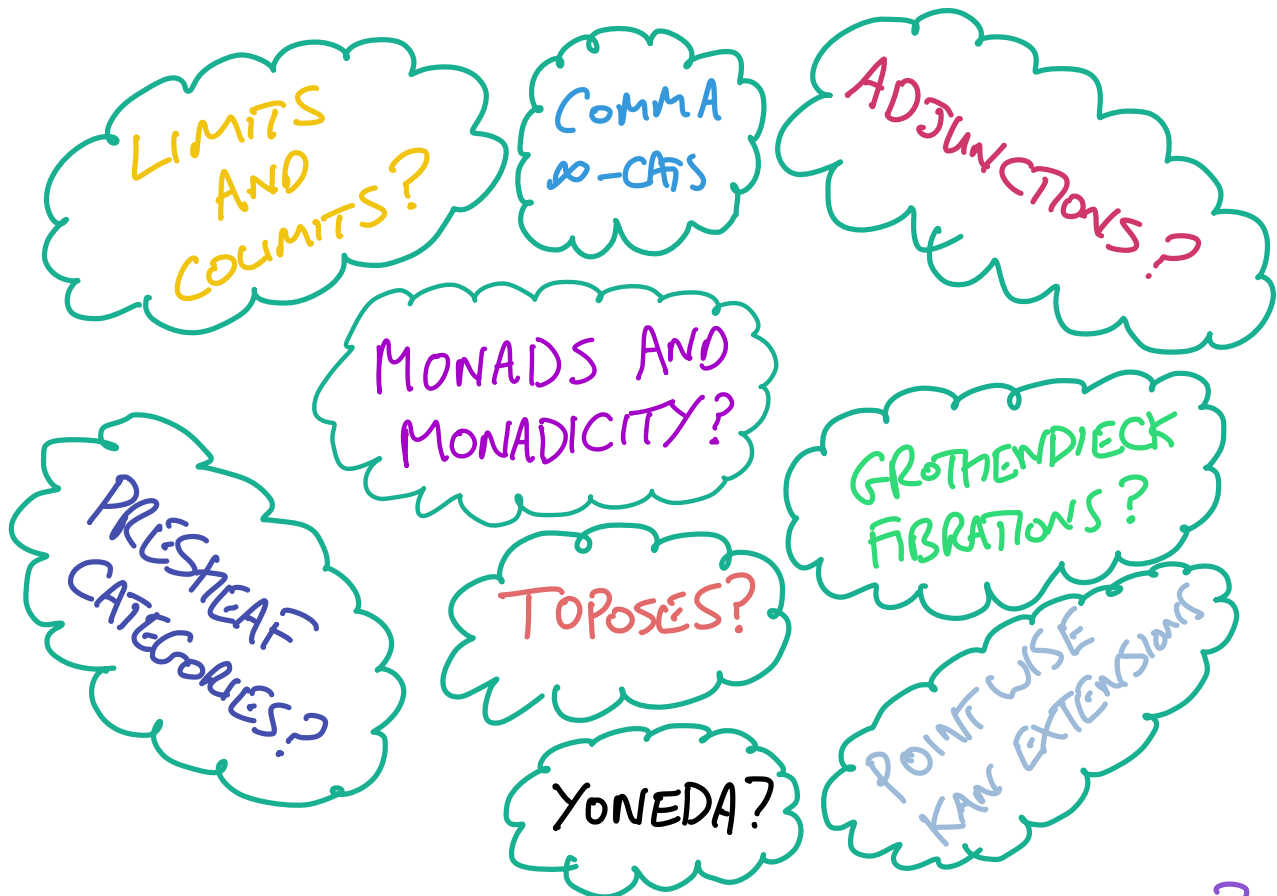 LIMITS
AND
COLIMITS?
COMMA
∞-CATS
ADJUNCTIONS?
MONADS AND
MONADICITY?
GROTHENDIECK
FIBRATIONS?
PRESHEAF
CATEGORIES?
TOPOSES?
POINTWISE
KAN EXTENSIONS
YONEDA?